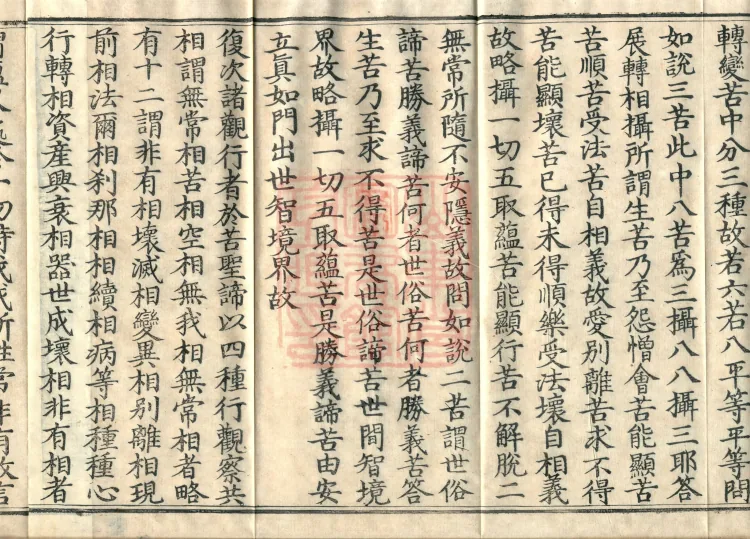 轉變苦中分三種故若六若八平等平等問
如說三苦此中八苦爲三攝八八攝三耶答
展轉相攝所謂生苦乃至怨憎會苦能顯苦
苦順苦受法苦自相義故愛別離苦求不得
苦能顯壞苦已得未得順樂受法壞自相義
故略攝一切五取蘊苦能顯行苦不解脫二
無常所隨不安隱義故問如說二苦謂世俗
諦苦勝義諦苦何者世俗苦何者勝義苦答
生苦乃至求不得苦是世俗諦苦世間智境
界故略攝一切五取蘊苦是勝義諦苦由安
立真如門出世智境界故
復次諸觀行者於苦聖諦以四種行觀察共
相謂無常相苦相空相無我相無常相者略
有十二謂非有相壞滅相變異相別離相現
前相法爾相刹那相相續相病等相種種心
行轉相資産興衰相器世成壞相非有相者
切時我我所性常非有故言